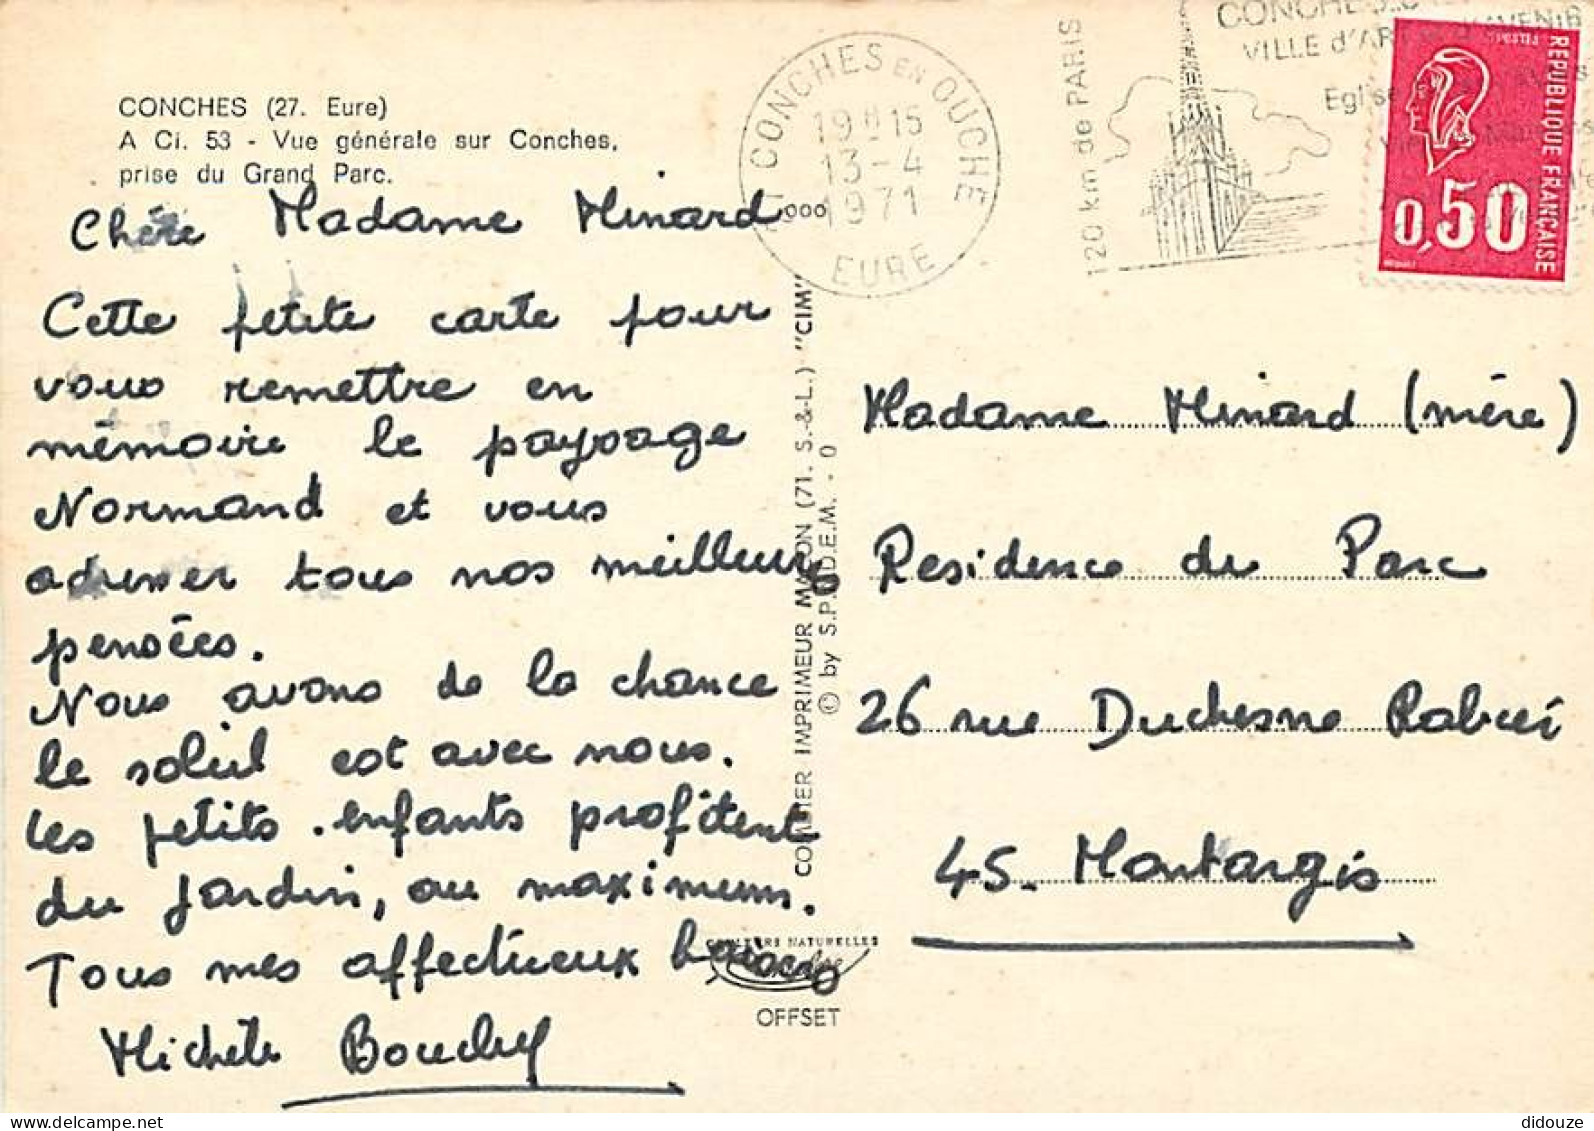 CONCHES (27. Eure)
A Ci. 53 - Vue générale sur Conches,
prise du Grand Parc.
Chère Madame Minard...
Cette petite carte pour
vous remettre en
mémoire le paysage
Normand et vous
adresser tous nos meilleurs
pensées.
Nous avons de la chance
le soleil est avec nous.
les petits enfants profitent
du jardin, au maximum.
Tous mes affectueux baisers
Michèle
CONCHES EN OUCHE
19H15
13-4
1971
EURE
120 km de PARIS
VILLE d'ART
Eglise
REPUBLIQUE FRANÇAISE
0,50
COMBIER IMPRIMEUR MACON (71. S.-&-L.) "CIM"
© by S.P.A.D.E.M. - 0
Madame Minard (mère)
Residence du Parc
26 rue Duchesne
45. Montargis
COULEURS NATURELLES
OFFSET
www.delcampe.net
didouze